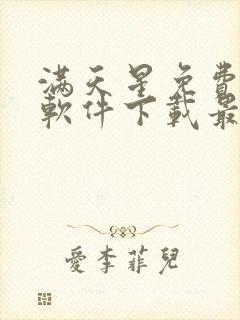 滿天星免費
軟件下載最
愛李菲兒